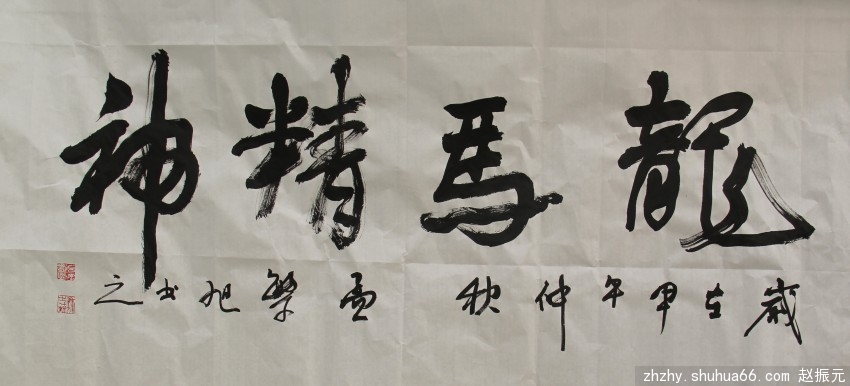 龍馬精神
歲在甲午仲秋 孟繁旭书之
zhzhy.shuhua66.com 赵振元